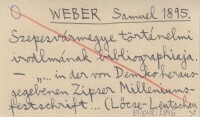 WEBER Samuel 1895.
Szepesvármegye történelmi
irodalmának bibliographiája.
— „... in der von Demko heraus-
gegebenen Zipser Milleniums-
festschrift ... (Lőcse-Leutschau